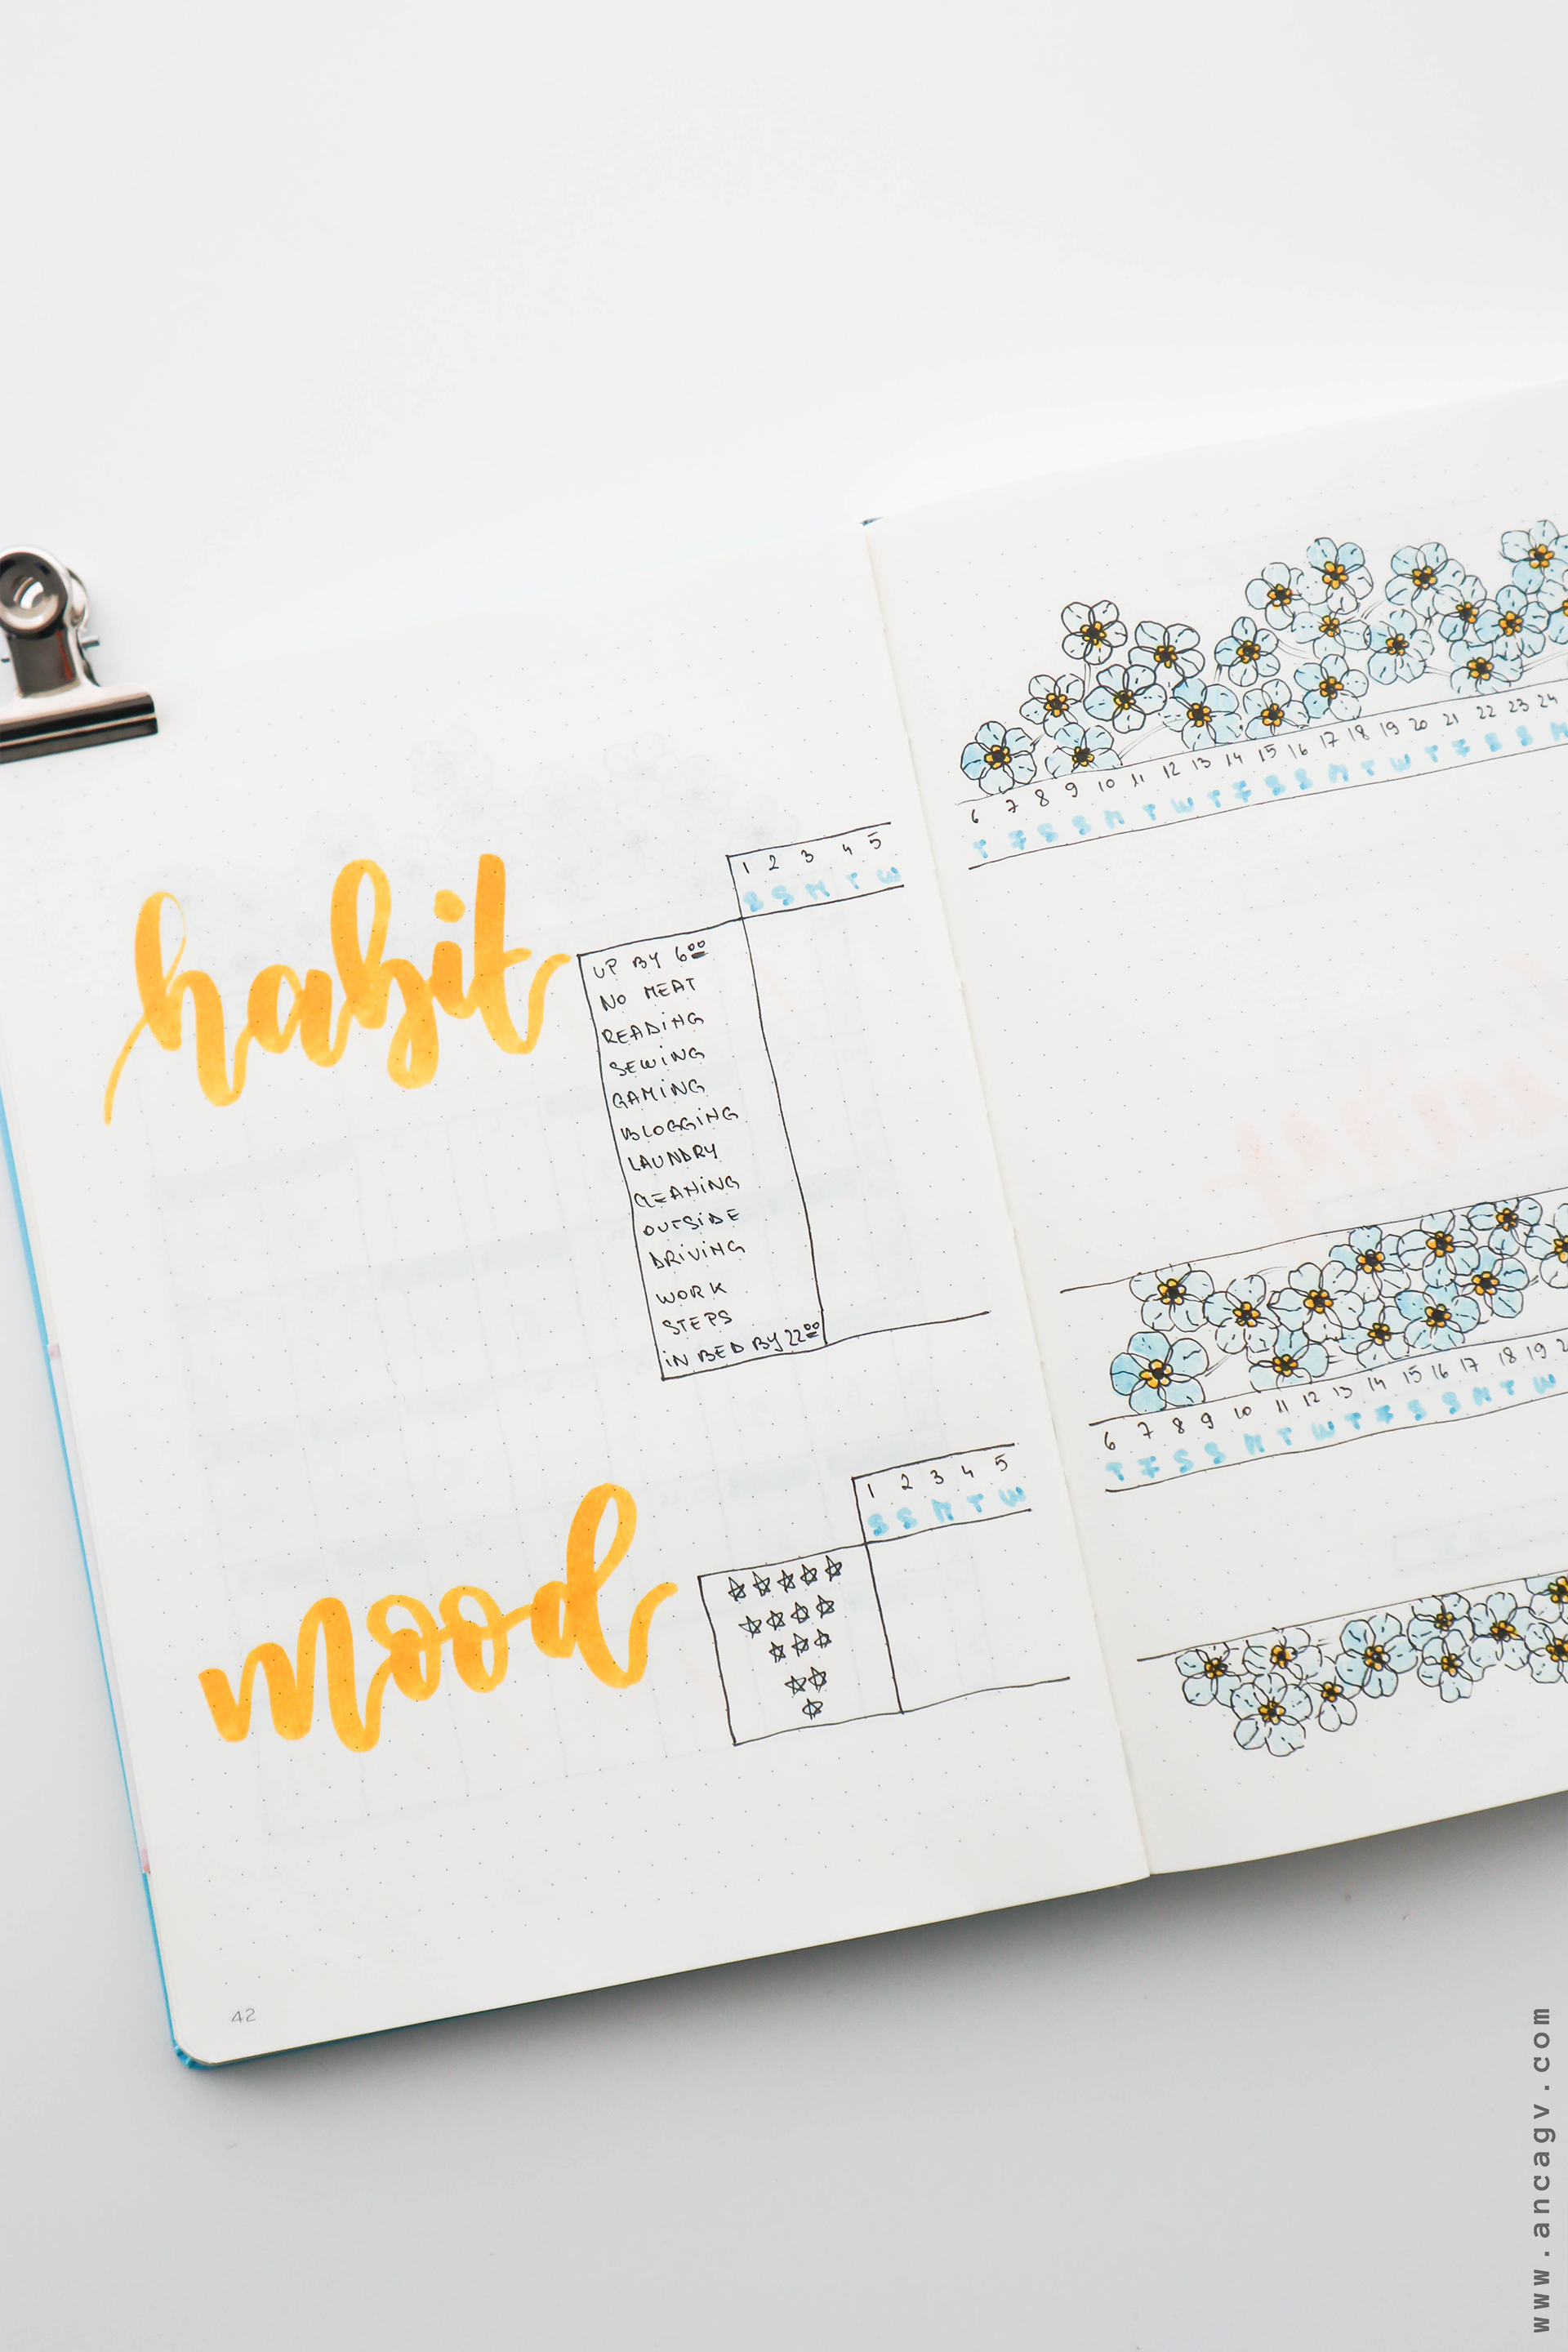 habit
1 2 3 4 5
S S M T W
UP BY 6⁰⁰
NO MEAT
READING
SEWING
GAMING
BLOGGING
LAUNDRY
CLEANING
OUTSIDE
DRIVING
WORK
STEPS
IN BED BY 22⁰⁰
mood
1 2 3 4 5
S S M T W
42
6 7 8 9 10 11 12 13 14 15 16 17 18 19 20 21 22 23 24
T F S S M T W T F S S M T W T F S S M
6 7 8 9 10 11 12 13 14 15 16 17 18 19
T F S S M T W T F S S M T W
www.ancagv.com